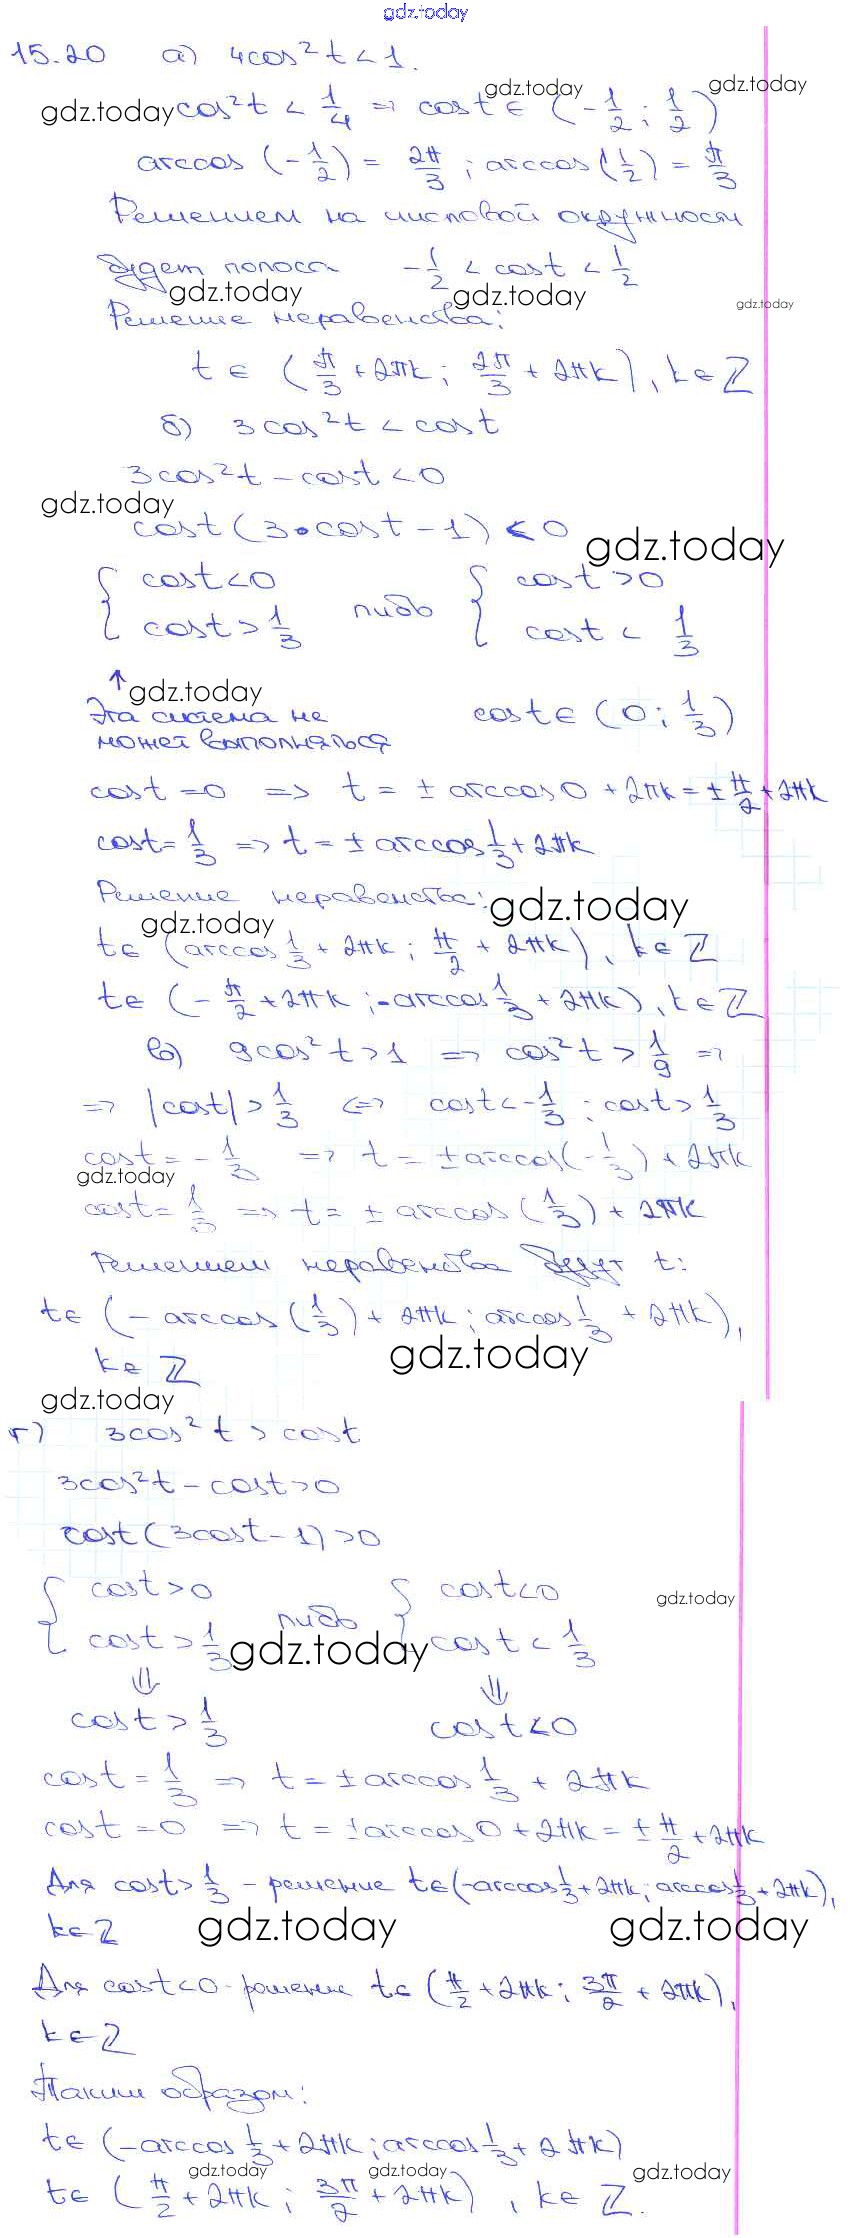 gdz.today
15.20 а) 4cos²t < 1.
gdz.today cos²t < 1/4 ⇒ cost ∈ (-1/2; 1/2) gdz.today gdz.today
arccos(-1/2) = 2π/3; arccos(1/2) = π/3
Решением на числовой окружности
будет полоса -1/2 < cost < 1/2
gdz.today gdz.today gdz.today
Решение неравенства:
t ∈ (π/3 + 2πk; 2π/3 + 2πk), k ∈ ℤ
б) 3cos²t < cost
3cos²t - cost < 0
gdz.today
cost(3·cost - 1) < 0
gdz.today
{ cost < 0 либо { cost > 0
cost > 1/3 cost < 1/3
↑ gdz.today
Эта система не cost ∈ (0; 1/3)
может выполняться
cost = 0 ⇒ t = ± arccos0 + 2πk = ± π/2 + 2πk
cost = 1/3 ⇒ t = ± arccos 1/3 + 2πk
Решение неравенства: gdz.today
gdz.today
t ∈ (arccos 1/3 + 2πk; π/2 + 2πk), k ∈ ℤ
t ∈ (-π/2 + 2πk; -arccos 1/3 + 2πk), k ∈ ℤ
в) 9cos²t > 1 ⇒ cos²t > 1/9 ⇒
⇒ |cost| > 1/3 ⇔ cost < -1/3; cost > 1/3
cost = -1/3 ⇒ t = ± arccos(-1/3) + 2πk
gdz.today
cost = 1/3 ⇒ t = ± arccos(1/3) + 2πk
Решением неравенства будут t:
t ∈ (-arccos(1/3) + 2πk; arccos 1/3 + 2πk),
k ∈ ℤ gdz.today
gdz.today
г) 3cos²t > cost
3cos²t - cost > 0
cost(3cost - 1) > 0
{ cost > 0 либо { cost < 0 gdz.today
cost > 1/3 gdz.today cost < 1/3
⇓ ⇓
cost > 1/3 cost < 0
cost = 1/3 ⇒ t = ± arccos 1/3 + 2πk
cost = 0 ⇒ t = ± arccos0 + 2πk = ± π/2 + 2πk
Для cost > 1/3 - решение t ∈ (-arccos 1/3 + 2πk; arccos 1/3 + 2πk),
k ∈ ℤ gdz.today gdz.today
Для cost < 0 - решение t ∈ (π/2 + 2πk; 3π/2 + 2πk),
k ∈ ℤ
Таким образом:
t ∈ (-arccos 1/3 + 2πk; arccos 1/3 + 2πk)
gdz.today gdz.today gdz.today
t ∈ (π/2 + 2πk; 3π/2 + 2πk), k ∈ ℤ.